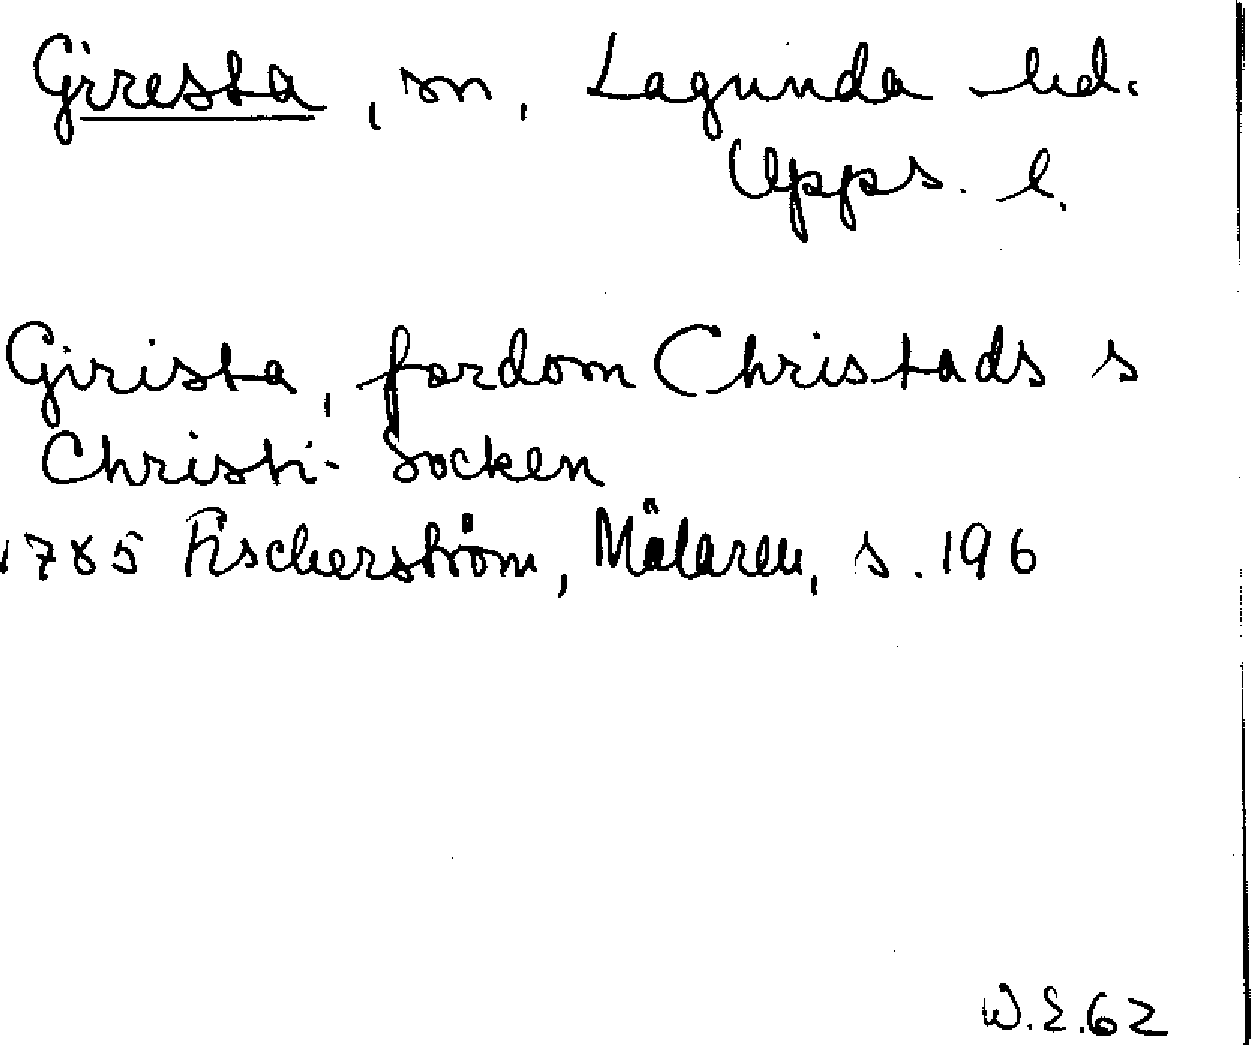 Giresta, sn, Lagunda hd.
Upps. l.
Girista, fordom Christads s
Christi- Socken
1785 Fischerström, Mälaren, s. 196
W.E.62